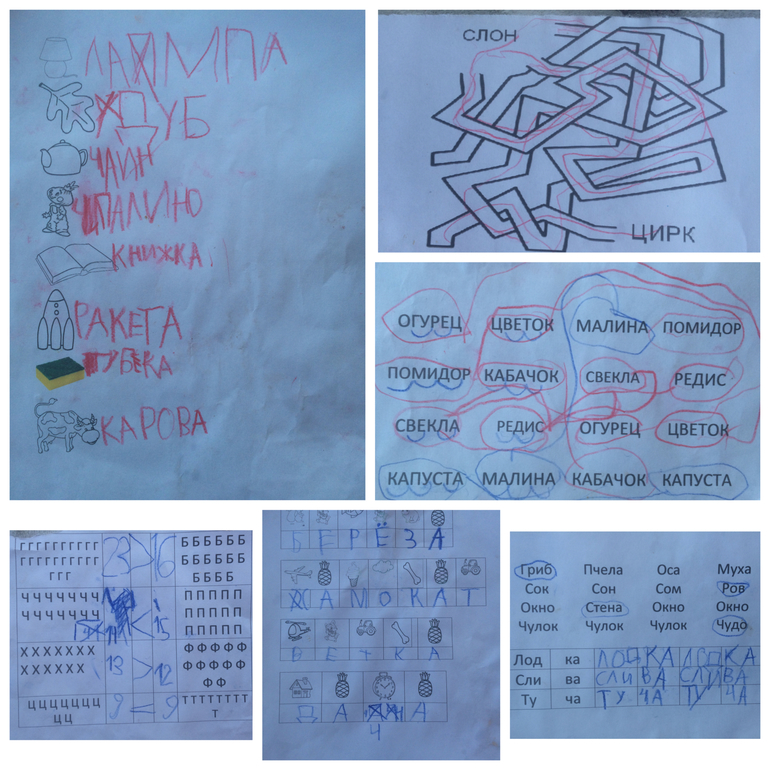 ЛАМПА
ДУБ
ЧАИН
ПАЛИНО
КНИЖКА
РАКЕТА
ГУБКА
КАРОВА
СЛОН
ЦИРК
ОГУРЕЦ ЦВЕТОК МАЛИНА ПОМИДОР
ПОМИДОР КАБАЧОК СВЕКЛА РЕДИС
СВЕКЛА РЕДИС ОГУРЕЦ ЦВЕТОК
КАПУСТА МАЛИНА КАБАЧОК КАПУСТА
ГГГГГГГГГГ 23 > 16 ББББББ
ГГГГГГГГГГ ББББББ
ГГГ ББББ
ЧЧЧЧЧЧЧ 14 < 15 ППППП
ЧЧЧЧЧЧЧ ППППП
ППППП
ХХХХХХХ 13 > 12 ФФФФФ
ХХХХХХ ФФФФФ
ФФ
ЦЦЦЦЦЦЦ 9 = 9 ТТТТТТТТ
ЦЦ Т
БЕРЁЗА
САМОКАТ
ВЕТКА
ДАЧА
Гриб Пчела Оса Муха
Сок Сон Сом Ров
Окно Стена Окно Окно
Чулок Чулок Чулок Чудо
Лод ка ЛОДКА ЛОДКА
Сли ва СЛИВА СЛИВА
Ту ча ТУЧА ТУЧА